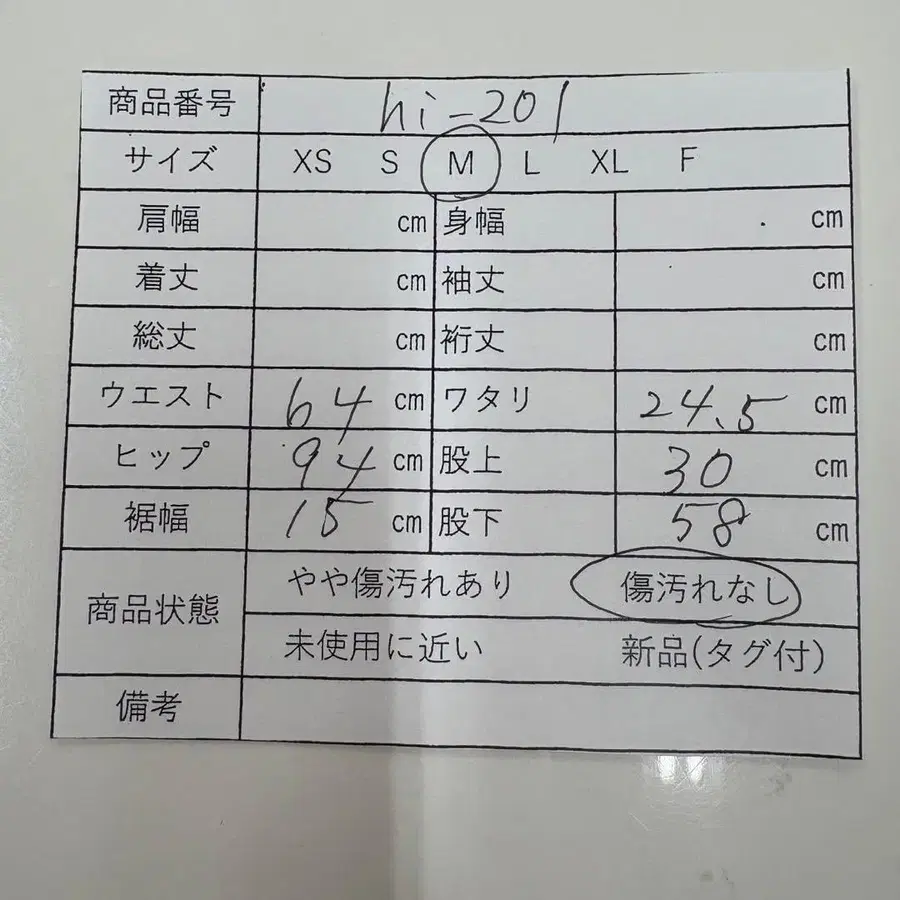 商品番号 hi-201
サイズ XS S M L XL F
肩幅 cm 身幅 cm
着丈 cm 袖丈 cm
総丈 cm 裄丈 cm
ウエスト 64 cm ワタリ 24.5 cm
ヒップ 94 cm 股上 30 cm
裾幅 15 cm 股下 58 cm
商品状態 やや傷汚れあり 傷汚れなし
未使用に近い 新品(タグ付)
備考